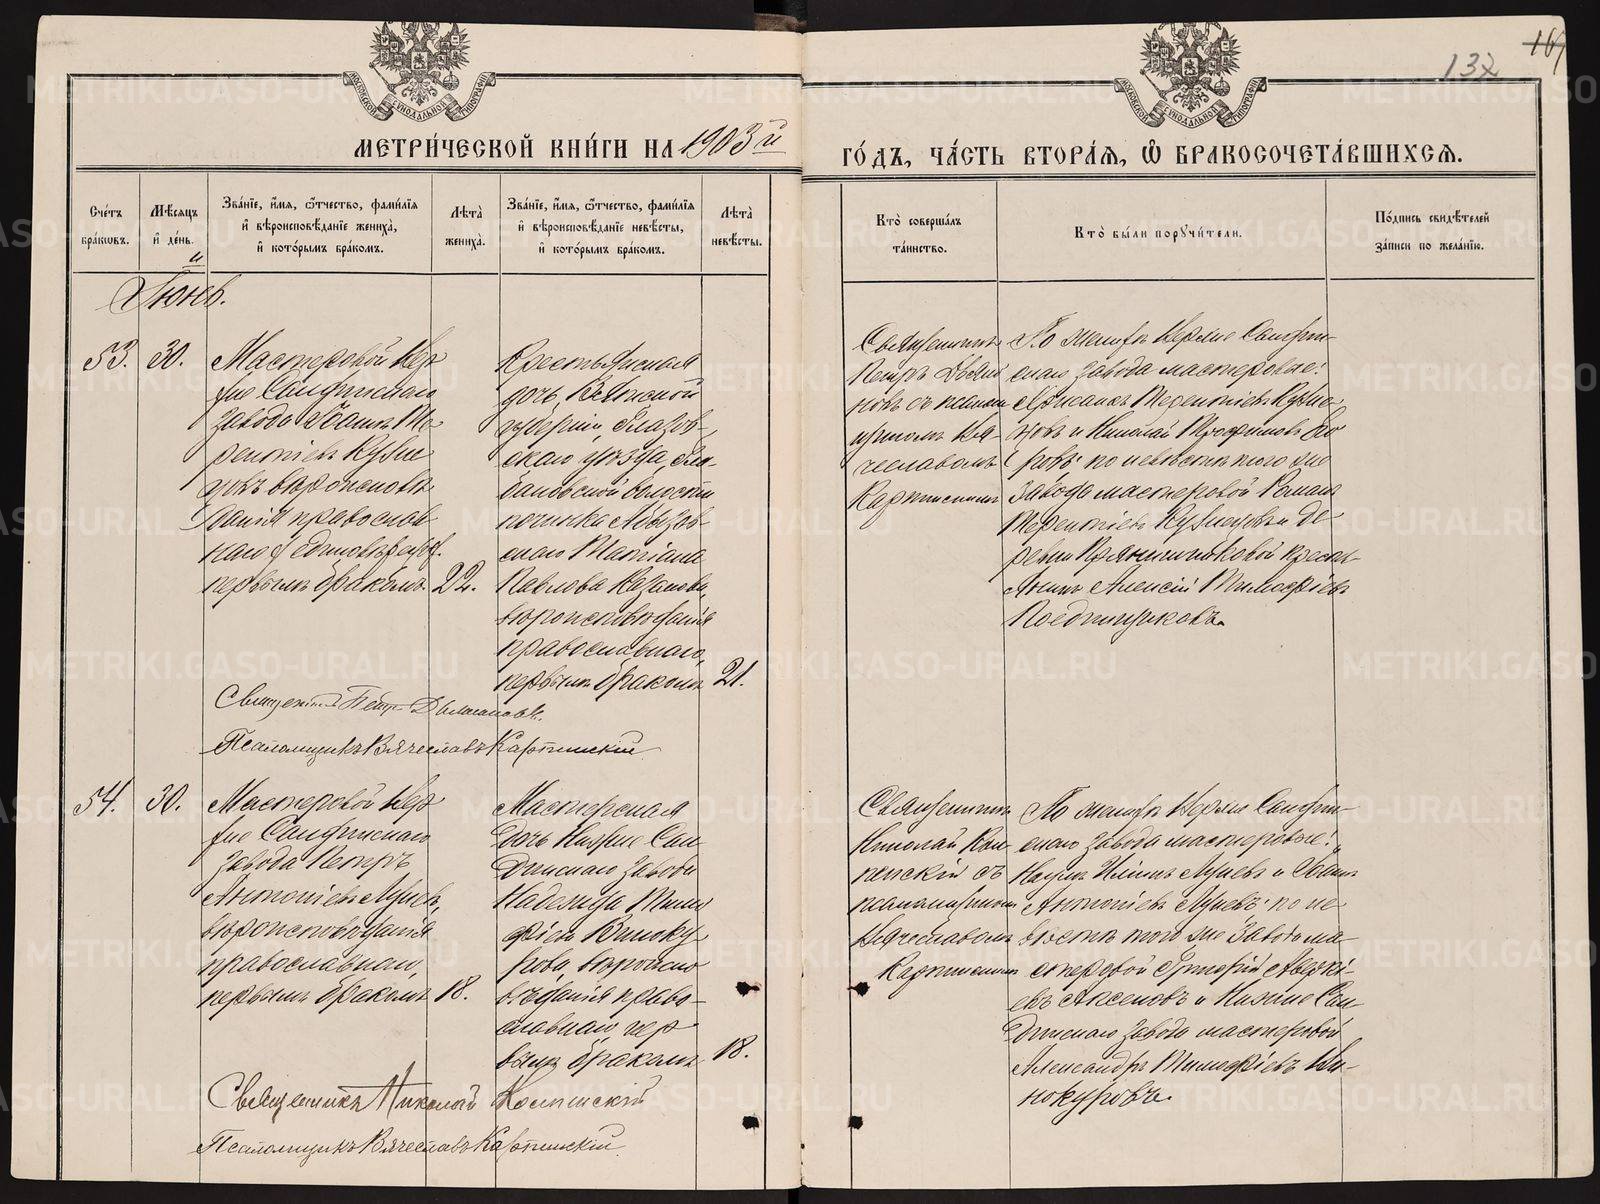 132
МОСКОВСКОЙ СѴНОДАЛЬНОЙ ТИПОГРАФІИ
МОСКОВСКОЙ СѴНОДАЛЬНОЙ ТИПОГРАФІИ
МЕТРИ́ЧЕСКОЙ КНИ́ГИ НА 1903й
ГО́ДЪ, ЧА́СТЬ ВТОРА́Ѧ, Ѽ БРАКОСОЧЕТА́ВШИХСѦ.
Сче́тъ бра́кѡвъ.
Мѣ́сѧцъ и҆ де́нь.
Зва́нїе, и҆́мѧ, ѻ҆́тчество, фами́лїѧ и҆ вѣроисповѣ́данїе жениха̀, и҆ кото́рымъ бра́комъ.
Лѣта̀ жениха̀.
Зва́нїе, и҆́мѧ, ѻ҆́тчество, фами́лїѧ и҆ вѣроисповѣ́данїе невѣ́сты, и҆ кото́рымъ бра́комъ.
Лѣта̀ невѣ́сты.
Кто̀ соверша́лъ та́инство.
Кто̀ бы́ли порꙋчи́тели.
По́дпись свидѣ́телей за́писи по жела́нїю.
Іюнь.
53.
30.
Мастеровой Вер
хне Салдинскаго
завода Іоаннъ Те
рентіевъ Кузне
цовъ вѣроисповѣ
данія православ
наго
первымъ бракомъ.
22.
Крестьянская
дочь, Вятской
губерніи, Глазов-
скаго уѣзда,
волости
починка
скаго Татіана
Павлова Казакова,
вѣроисповѣданія
православнаго,
первымъ бракомъ
21.
Священникъ
Петръ Дьяко
новъ съ псалом
щикомъ Вя-
чеславомъ
Карпинскимъ
По женихѣ Верхне Салдин-
скаго завода мастеровые:
Терентіевъ Кузне
цовъ и Николай Трофимовъ
по невѣстѣ того же
завода мастеровой Романъ
Терентіевъ Кузнецовъ и де-
ревни крестья
нинъ Алексій Тимофѣевъ
Священникъ Петръ
Псаломщикъ Вячеславъ Карпинскій
54.
30.
Мастеровой Вер
хне Салдинскаго
завода Петръ
Антоніевъ
вѣроисповѣданія
православнаго,
первымъ бракомъ
18.
Мастерская
дочь Нижне Сал
динскаго завода
Надежда Тимо
фѣева Виноку
рова, вѣроиспо
вѣданія право-
славнаго, пер
вымъ бракомъ
18.
Священникъ
Николай
съ
псаломщикомъ
Вячеславомъ
Карпинскимъ
По женихѣ Верхне Салдин-
скаго завода мастеровые:
Наумъ Ильинъ и Іоаннъ
Антоніевъ по не
вѣстѣ того же завода ма-
стеровой Григорій Аверкі-
евъ Аксеновъ и Нижне Сал-
динскаго завода мастеровой
Александръ Тимофѣевъ Ви-
нокуровъ.
Священникъ Николай
Псаломщикъ Вячеславъ Карпинскій
METRIKI.GASO-URAL.RU